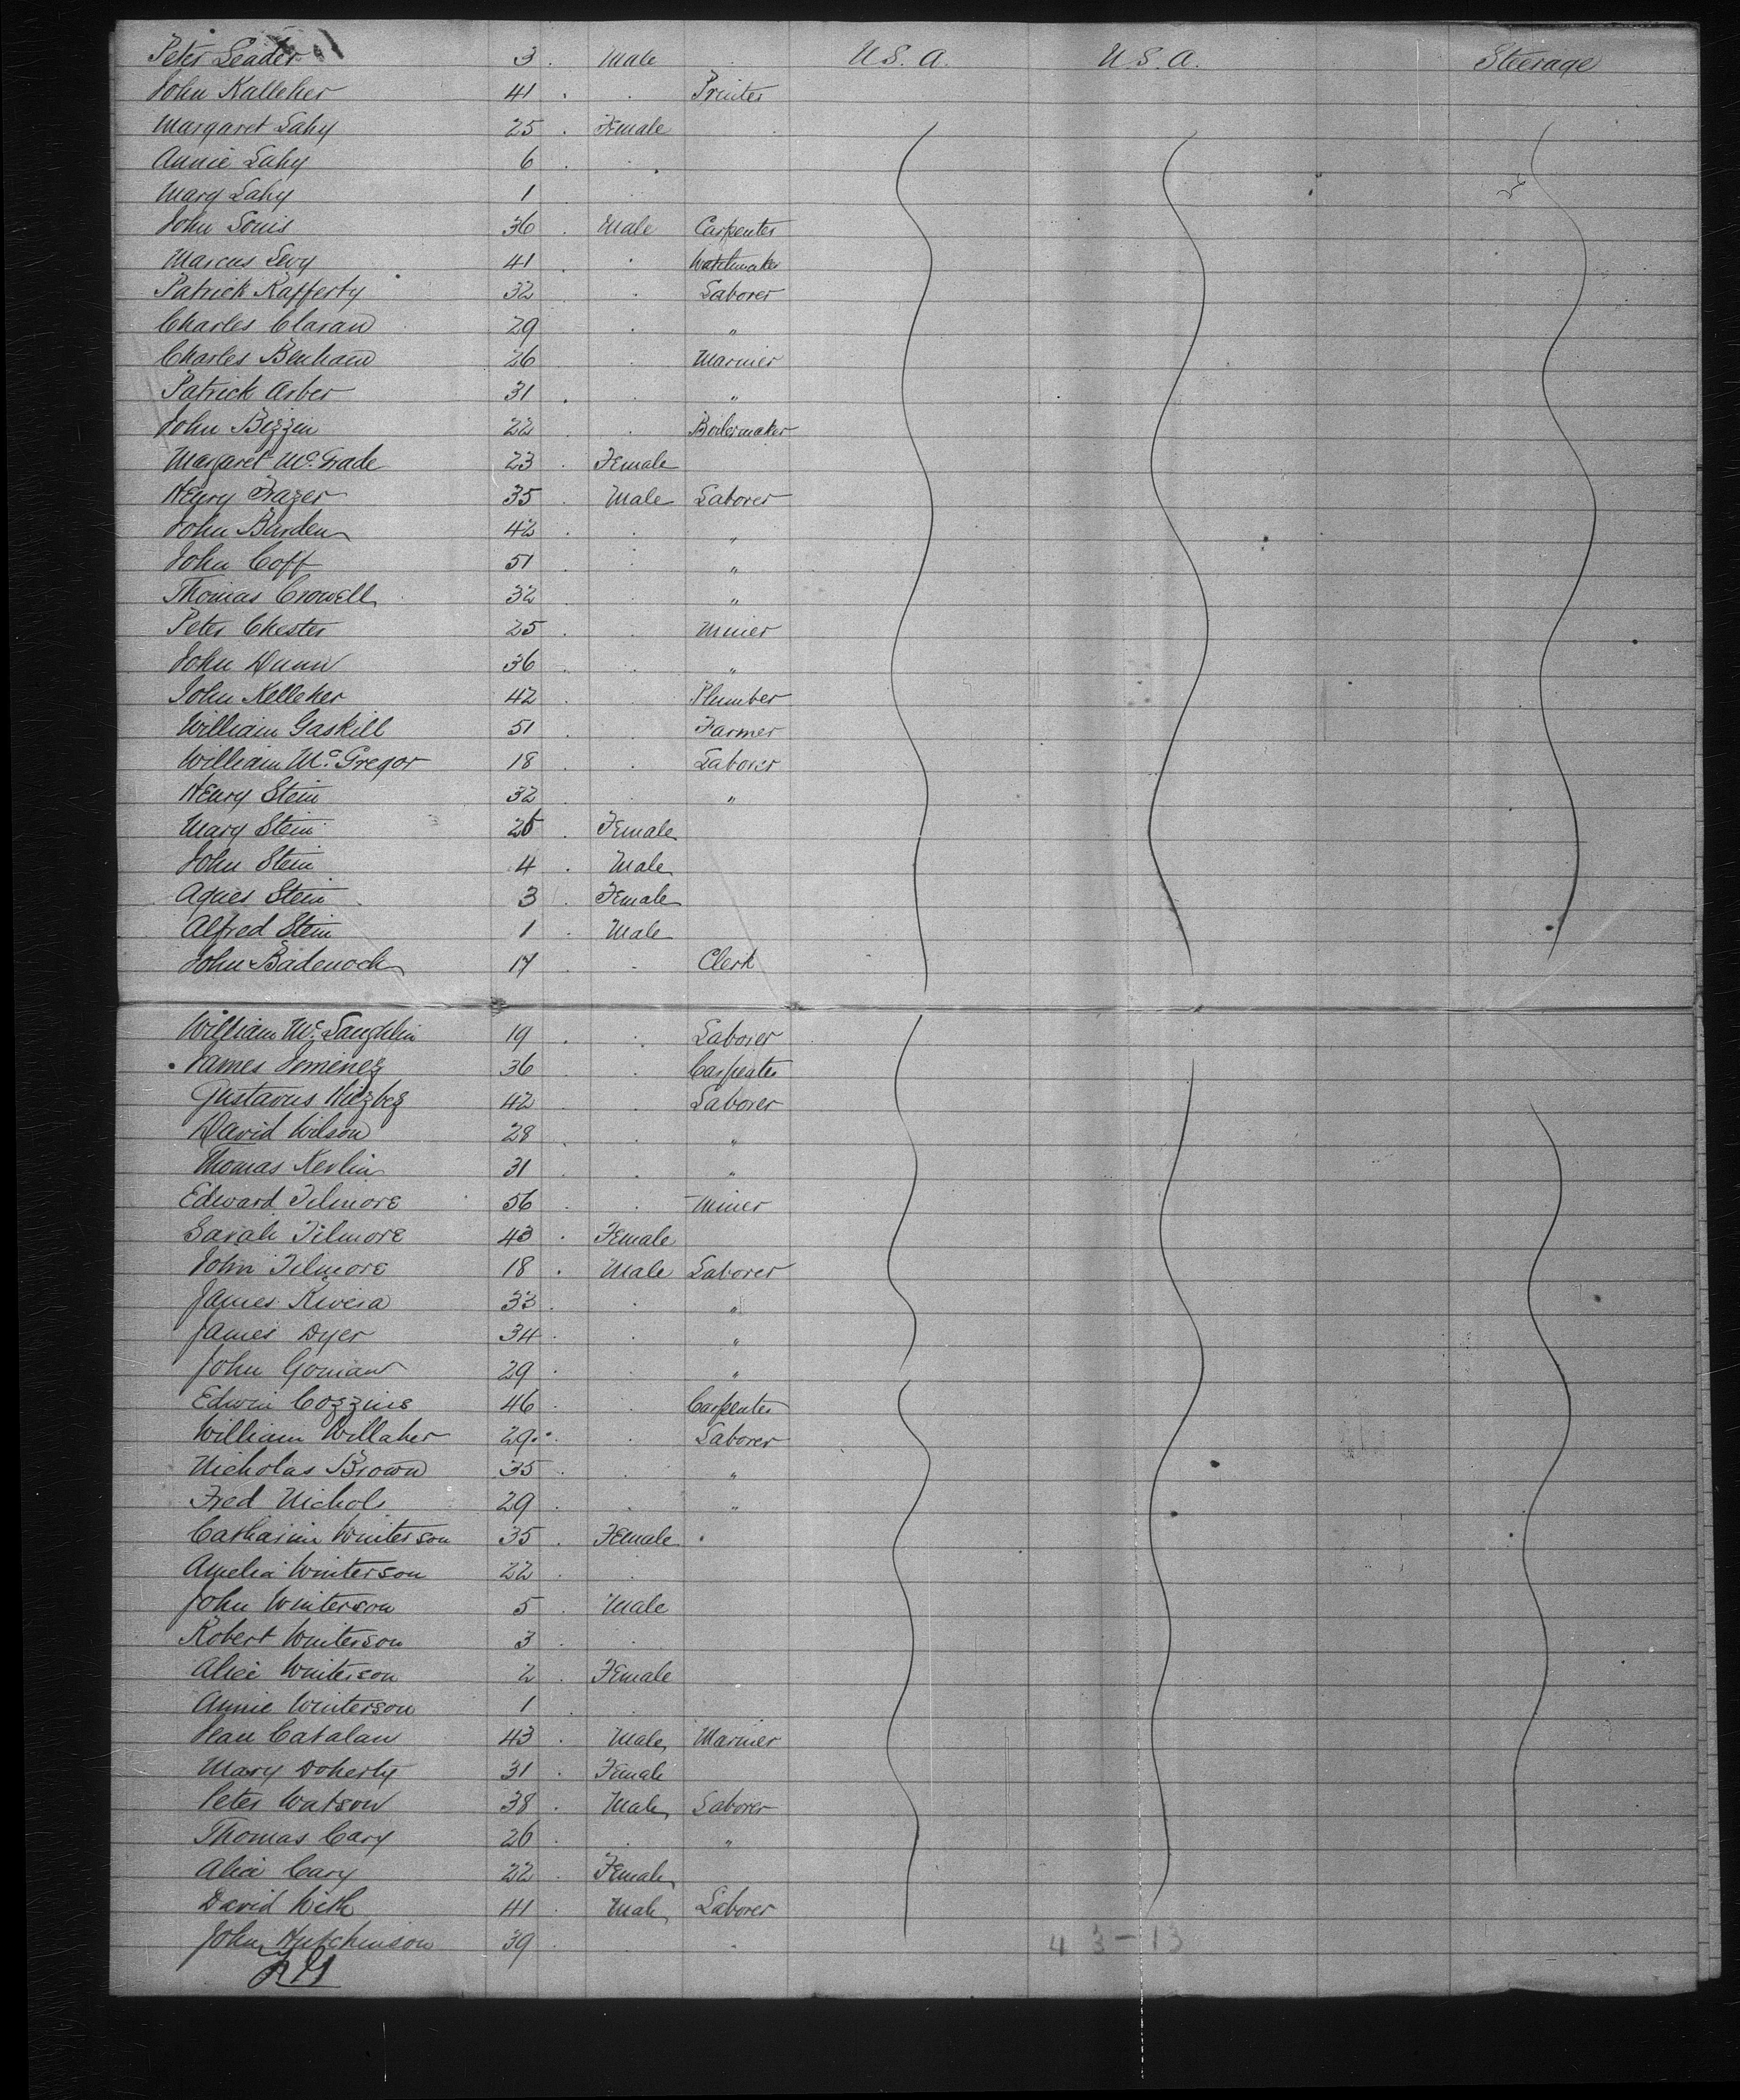 Peter Leader 3 . Male . U.S.A. U.S.A. Steerage
John Kalleher 41 . . Printer
Margaret Lahy 25 . Female
Annie Lahy 6 . .
Mary Lahy 1 .
John Louis 36 . Male Carpenter
Marcus Levy 41 . . Watchmaker
Patrick Rafferty 32 . Laborer
Charles Claran 29 . "
Charles Benham 26 . Marnier
Patrick Arber 31 . . "
John Bizzen 22 . . Boilermaker
Margaret McGrade 23 . Female
Henry Frazer 35 . Male Laborer
John Burden 42 . . "
John Coff 51 . . "
Thomas Crowell 32 . . "
Peter Chester 25 . . Miner
John Dunn 36 . . "
John Kelleher 42 . Plumber
William Gaskill 51 . . Farmer
William McGregor 18 . . Laborer
Henry Stein 32 . . "
Mary Stein 25 . Female
John Stein 4 . Male
Agnes Stein 3 . Female
Alfred Stein 1 . Male
John Badenoch 17 . . Clerk
William McLaughlin 19 . . Laborer
James Jemenez 36 . . Carpenter
Gustavus 42 . . Laborer
David Wilson 28 . . "
Thomas Kevlin 31 . . "
Edward Filmore 56 . . Miner
Sarah Filmore 43 . Female
John Filmore 18 . Male Laborer
James Rivera 33 . . "
James Dyer 34 . . "
John Gorman 29 . . "
Edwin Cozzins 46 . . Carpenter
William Willaher 29 . . Laborer
Nicholas Brown 35 . . "
Fred Nichols 29 . . "
Catharine Winterson 35 . Female .
Amelia Winterson 22 . .
John Winterson 5 . Male
Robert Winterson 3 . .
Alice Winterson 2 . Female
Annie Winterson 1 . .
Jean Catalan 43 . Male Marnier
Mary Doherty 31 . Female
Peter Watson 38 . Male Laborer
Thomas Cary 26 . . "
Alice Cary 22 . Female
David 41 . Male Laborer
John Hutchinson 39 . . .
43-13